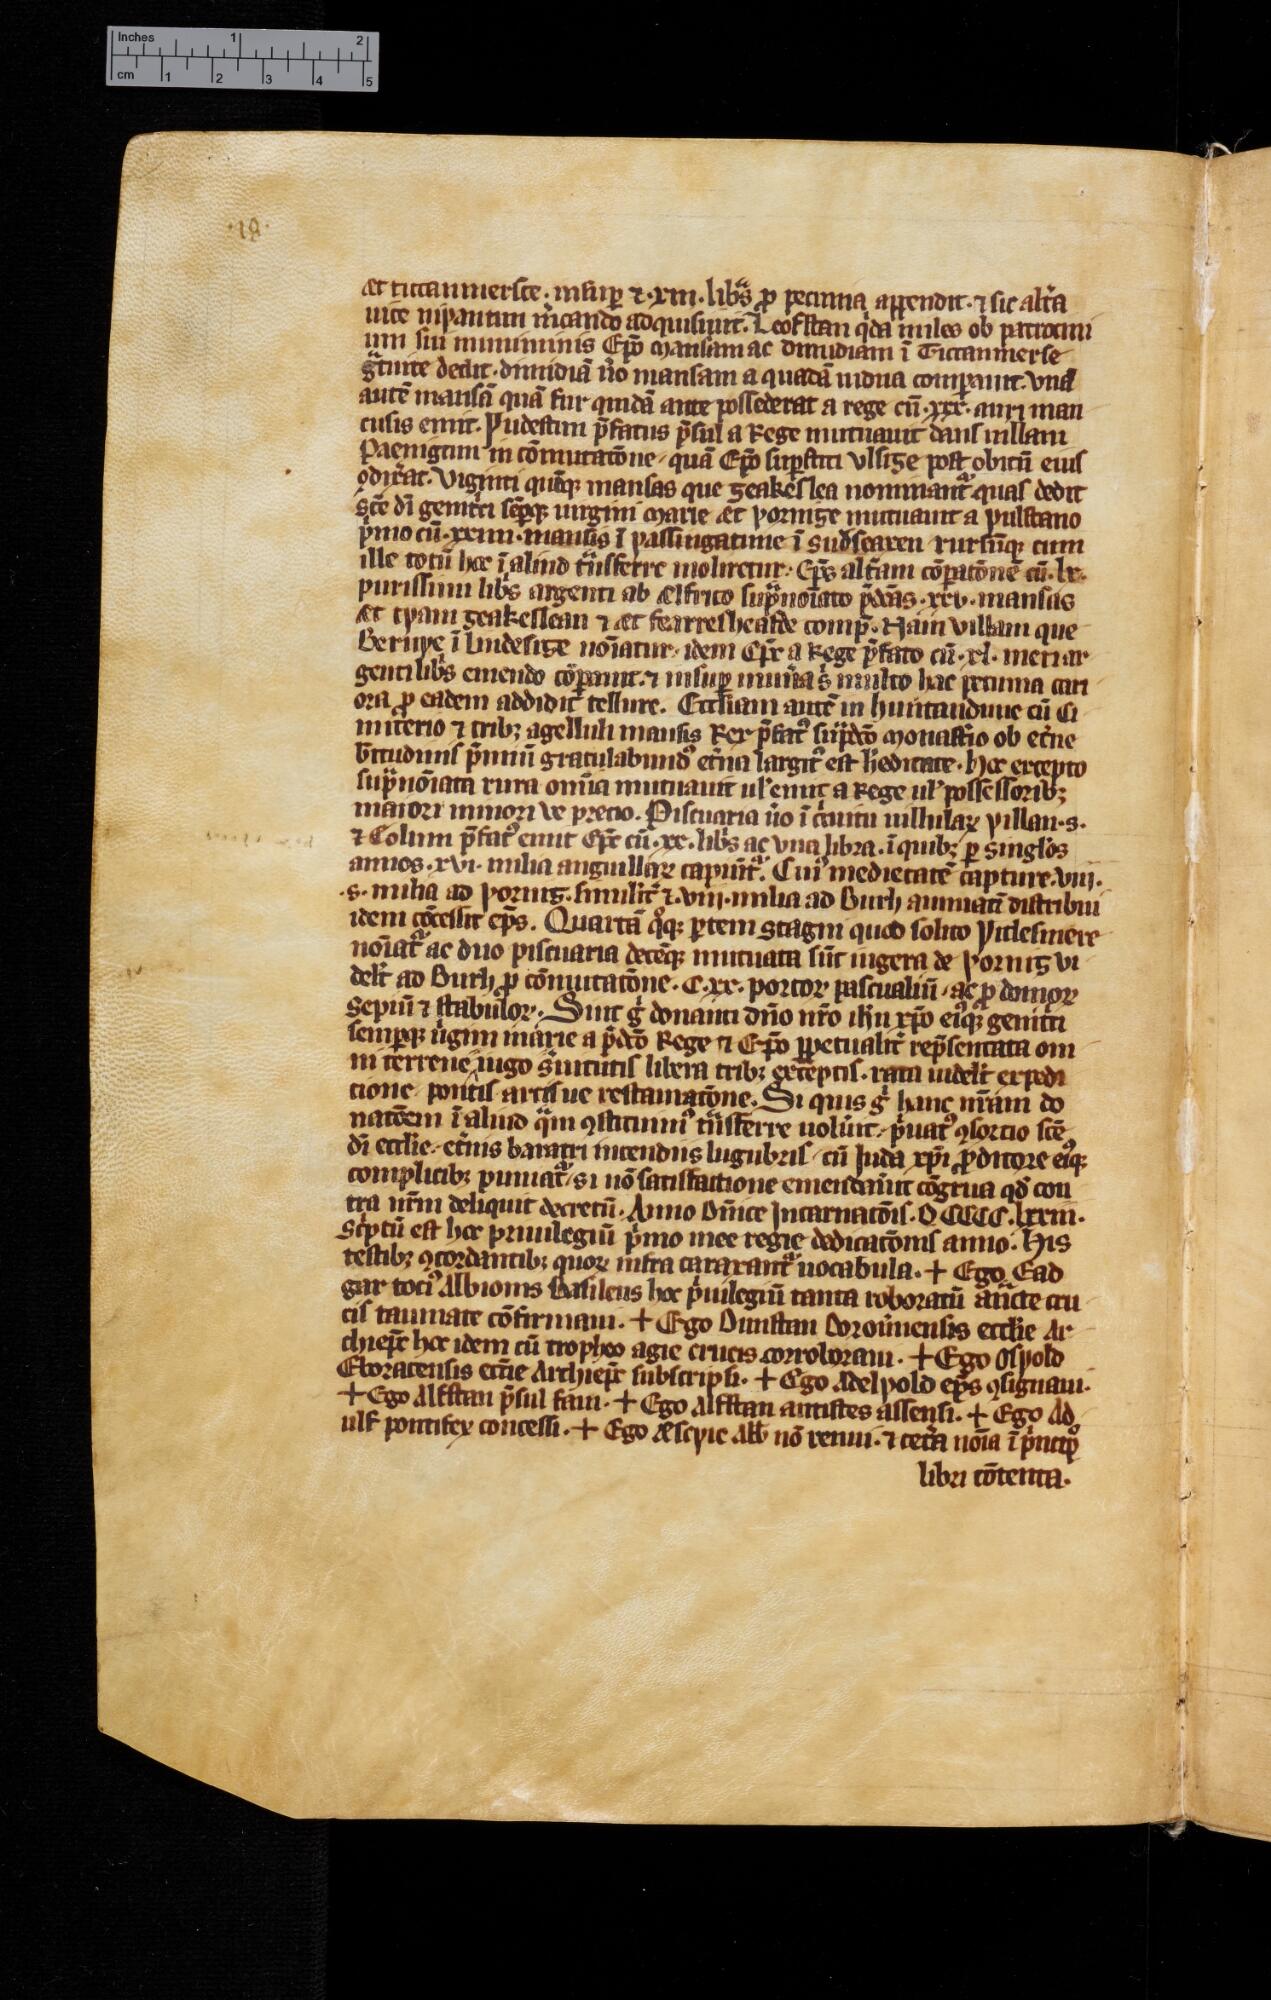 Inches 1 2
cm 1 2 3 4 5
·18·
æt ticcanmersce. insup̄ & .xiii. lib̾s ꝓ pecunia appendit. & sic alt̾a
uice nipantun m̾cando adquisiuit. Leofstan q̾dā miles ob patrocini
um sui muniminis Ep̄o mansam ac dimidiam ī Ticcanmerse
g̾tuite dedit. dimidiā u̾o mansam a quadā uidua comparauit. vnā
autē mansā quā fur quidā ante possederat a rege cū .xxx. auri man
cusis emit. ƿudestun p̄fatus p̄sul a Rege mutuauit dans uillam
Paenigtun in cōmutatōne, quā Ep̄o sup̱stiti vlsige post obitū eius
ꝯdix̾at. Viginti quinq; mansas que geakeslea nominant᷑ quas dedit
sc̄e dī genit̾ci semp̱q; uirgini Marie æt ƿornige mutuauit a ƿulstano
p̾mo cū .xxiiii. mansis ī ƿassingatune ī sudsearen rursūq; cum
ille totū hoc ī aliud t̾nsferre moliretur. Ep̄s alt̾am cōparatōnē cū .lx.
purissimi lib̾s argenti ab ælfrico sup̾noīato p̄dc̄as .xxv. mansas
Æt tƿam geakeslean & æt fearresheafde comp̱. Nam villam que
Beruƿe ī lindesige noīatur, idem Ep̄c a Rege p̄fato cū .xl. meri ar
genti lib̾s emendo cōparauit. & insup̱ mun̾a s̾ multo hac pecunia cari
ora ꝓ eadem addidit tellure. Eccl̄iam autē in huntandune cū Ci
mit̾erio & trib; agelluli mansis Rex p̄fat᷒ sup̾dc̄o monast̾io ob et̾ne
b̄titudinis p̄miū gratulabund᷒ et̾na largit᷒ est h̾editate. hoc excepto
sup̾nōiata rura om̄ia mutuauit ul̾ emit a Rege ul̾ possessorib;
maiori minori ve precio. Piscuaria u̾o ī c̾cuitu uillulaꝝ ƿillan .s.
& Colum p̄fat᷒ emit Ep̄c cū .xx. lib̾s ac vna libra. ī quib; ꝑ singlōs
annos .xvi. milia anguillaꝝ capiūt᷑. Cui᷒ medietatē capture .viii.
.s. milia ad ƿornig. similit̾ & .viii. milia ad Burh annuatī distribui
idem cōcessit ep̄s. Quartā q̊q; ꝑtem stagni quod solito ƿitlesmere
noīat᷑ ac duo piscuaria decēq; mutuata sūt iugera de ƿornig vi
delic̾ ad Burh ꝓ cōmutatōne. C.xx. porcoꝝ pascualiū, ac ꝓ domoꝝ
Sepiū & stabuloꝝ. Sint g̾ donanti dn̄o nr̄o ihu xp̄o ei᷒q; genit̾ci
semp̱q; u̾gini marie a p̄dc̄o Rege & Ep̄o ꝑpetualit̾ rep̱sentata om
ni terrene iugo s̾uitutis libera trib; exceptis. rata uidelic̾ expedi
cione, pontis arcis ue restauratōne. Si quis g̾ hanc nr̄am do
natōem ī aliud q̾m ꝯstituim᷒ t̾nsferre uolu̾it, p̾uat᷒ ꝯsorcio sc̄e
dī eccl̄ie, et̾nis baratri incendiis lugubris, cū Iuda xp̄i ꝓditore ei᷒q;
complicib; puniat᷑, si nō satisfactione emendau̾it cōgrua qd̄ con
tra nr̄m deliquit decretū. Anno Dn̄ice Incarnatōis. DCCCC.lxxiii.
Sc̾ptū est hoc priuilegiū p̾mo mee regie dedicatōnis anno. His
testib; ꝯcordantib; quoꝝ infra caraxant᷑ uocabula. + Ego Ead
gar toci᷒ Albionis Basileus hoc p̾uilegiū tanta roboratū auct̾te cru
cis taumate cōfirmaui. + Ego Dunstan Dorou̾nensis eccl̄ie Ar
chiep̄c hoc idem cū tropheo agie crucis corroboraui. + Ego Osƿold
Eboracensis ecc̄ie Archiep̄c subscripsi. + Ego Adelƿold ep̄s ꝯsignaui.
+ Ego Alfstan p̄sul faui. + Ego Alfstan antistes assensi. + Ego Ad
ulf pontifex concessi. + Ego Æscƿic Abb̄ nō renui. & cet̾a noīa ī p̾ncip᷒
libri cōtenta.